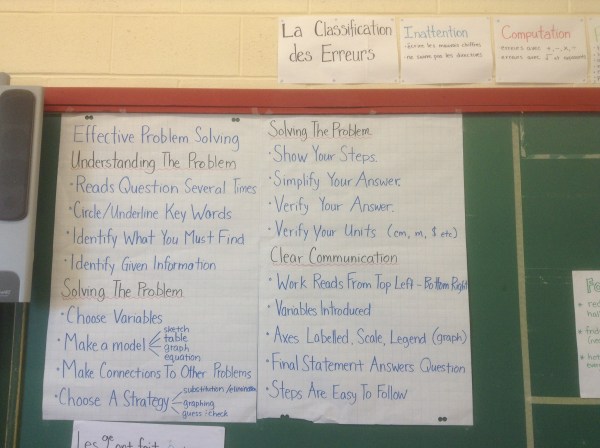 La Classification
des Erreurs
Inattention
Computation
Effective Problem Solving
Understanding The Problem
• Reads Question Several Times
• Circle/Underline Key Words
• Identify What You Must Find
• Identify Given Information
Solving The Problem
• Choose Variables
• Make a model
sketch
table
graph
equation
• Make Connections To Other Problems
• Choose A Strategy
substitution/elimination
graphing
guess & check
Solving The Problem
• Show Your Steps.
• Simplify Your Answer.
• Verify Your Answer.
• Verify Your Units (cm, m, $ etc)
Clear Communication
• Work Reads From Top Left - Bottom Right
• Variables Introduced
• Axes Labelled, Scale, Legend (graph)
• Final Statement Answers Question
• Steps Are Easy To Follow